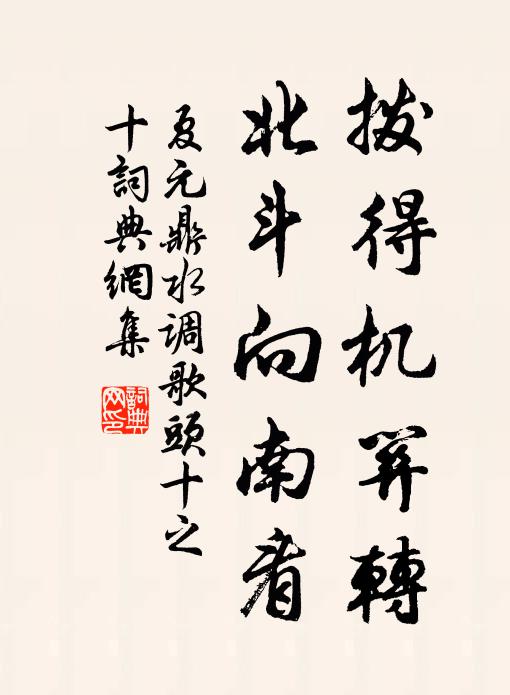 拨得机関轉
北斗向南看
夏元鼎水调歌頭十之
十詞典網集
詞典網印